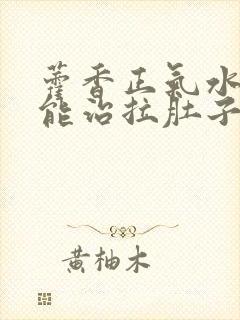 藿香正氣水
能治拉肚子
黄柚木